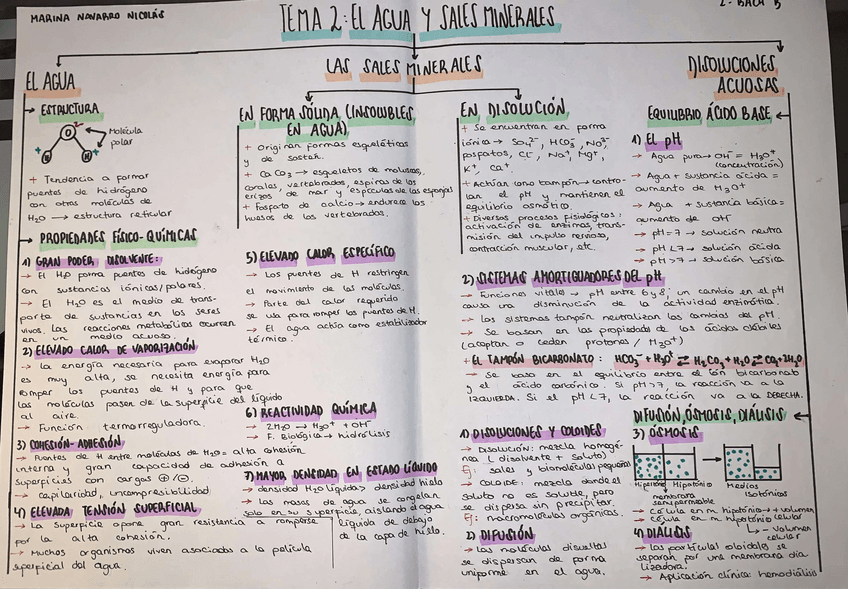 MARINA NAVARRO NICOLÁS
2º BACH B
TEMA 2: EL AGUA Y SALES MINERALES
EL AGUA
→ ESTRUCTURA
O
H H
Molécula
polar
+ Tendencia a formar
puentes de hidrógeno
con otras moléculas de
H2O → estructura reticular
→ PROPIEDADES FÍSICO-QUÍMICAS
1) GRAN PODER DISOLVENTE:
→ El H2O forma puentes de hidógeno
con sustancias iónicas/polares.
→ El H2O es el medio de trans-
parte de sustancias en los seres
vivos. Las reacciones metabólicas ocurren
en un medio acuoso.
2) ELEVADO CALOR DE VAPORIZACIÓN
→ La energía necesaria para evaporar H2O
es muy alta, se necesita energía para
romper los puentes de H y para que
las moléculas pasen de la superficie del líquido
al aire.
→ Función termorreguladora.
3) COHESIÓN-ADHESIÓN
→ Puentes de H entre moléculas de H2O = alta cohesión
interna y gran capacidad de adhesión a
superficies con cargas ⊕/⊖.
→ capilaridad, incompresibilidad.
4) ELEVADA TENSIÓN SUPERFICIAL
→ La superficie opone gran resistencia a romperse
por la alta cohesión.
→ Muchos organismos viven asociados a la película
superficial del agua.
LAS SALES MINERALES
EN FORMA SÓLIDA (INSOLUBLES
EN AGUA)
+ Originan formas esqueléticas
y de sostén.
+ CaCO3 → esqueletos de moluscos,
corales, vertebrados, espinas de los
erizos de mar y espículas de las esponjas
+ Fosfato de calcio → endurece los
huesos de los vertebrados.
5) ELEVADO CALOR ESPECÍFICO
→ Los puentes de H restringen
el movimiento de las moléculas.
→ Parte del calor requerido
se usa para romper los puentes de H.
→ El agua actúa como estabilizador
térmico.
6) REACTIVIDAD QUÍMICA
→ 2H2O → H3O+ + OH-
→ F. Biológica → hidrólisis
7) MAYOR DENSIDAD EN ESTADO LÍQUIDO
→ densidad H2O líquida > densidad hielo
→ Las masas de agua se congelan
solo en su superficie, aislando el agua
líquida de debajo
de la capa de hielo.
EN DISOLUCIÓN
+ Se encuentran en forma
iónica → SO4 2-, HCO3-, NO3-,
fosfatos, Cl-, Na+, Mg+,
K+, Ca+.
+ Actúan como tampón → contro-
lan el pH y mantienen el
equilibrio osmótico.
+ Diversos procesos fisiológicos:
activación de enzimas, trans-
misión del impulso nervioso,
contracción muscular, etc.
DISOLUCIONES
ACUOSAS
EQUILIBRIO ÁCIDO BASE
1) EL pH
→ Agua pura → OH- = H3O+
(concentración)
→ Agua + sustancia ácida =
aumento de H3O+
→ Agua + sustancia básica =
aumento de OH-
→ pH = 7 → solución neutra
→ pH < 7 → solución ácida
→ pH > 7 → solución básica
2) SISTEMAS AMORTIGUADORES DEL pH
→ Funciones vitales → pH entre 6 y 8, un cambio en el pH
causa una disminución de la actividad enzimática.
→ Los sistemas tampón neutralizan los cambios del pH.
→ Se basan en las propiedades de los ácidos débiles
(aceptan o ceden protones / H3O+)
+ EL TAMPÓN BICARBONATO: HCO3- + H3O+ ⇄ H2CO3 + H2O ⇄ CO2 + 2H2O
→ Se basa en el equilibrio entre el ión bicarbonato
y el ácido carbónico. Si pH > 7, la reacción va a la
IZQUIERDA. Si el pH < 7, la reacción va a la DERECHA.
1) DISOLUCIONES Y COLOIDES
→ DISOLUCIÓN: mezcla homogé-
nea (disolvente + soluto)
Ej: sales y biomoléculas pequeñas
→ COLOIDE: mezcla donde el
soluto no es soluble, pero
se dispersa sin precipitar.
Ej: macromoléculas orgánicas.
2) DIFUSIÓN
→ Las moléculas disueltas
se dispersan de forma
uniforme en el agua.
DIFUSIÓN, ÓSMOSIS, DIÁLISIS
3) ÓSMOSIS
Hipertónico Hipotónico
membrana
semipermeable
Medios
isotónicos
→ Célula en m. hipotónico → + volumen
celular
→ célula en m. hipertónico
↳ - volumen
celular
4) DIÁLISIS
→ Las partículas coloidales se
separan por una membrana dia-
lizadora.
→ Aplicación clínica: hemodiálisis